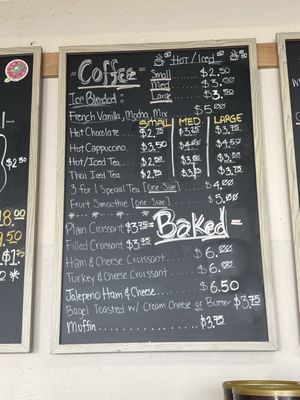 Coffee
Hot / Iced
Small ........ $2.50
Med ........ $3.00
Large ........ $3.50
Ice Blended:
French Vanilla, Mocha, Mix $5.00
SMALL MED LARGE
Hot Chocolate.. $2.75 $3.25 $3.75
Hot Cappuccino. $3.50 $4.00 $4.50
Hot/Iced Tea... $2.50 $3.00 $3.50
Thai Iced Tea.. $2.75 $3.25 $3.75
3 for 1 Special Tea [One-Size] .... $4.00
Fruit Smoothie [One-Size] .... $5.00
Baked
Plain Croissant $3.75
Filled Croissant $3.75
Ham & Cheese Croissant...... $6.00
Turkey & Cheese Croissant.... $6.00
Jalapeno Ham & Cheese...... $6.50
Bagel Toasted w/ Cream Cheese or Butter $3.75
Muffin ............ $3.75
$2.50
8.00
9.50
$1.75